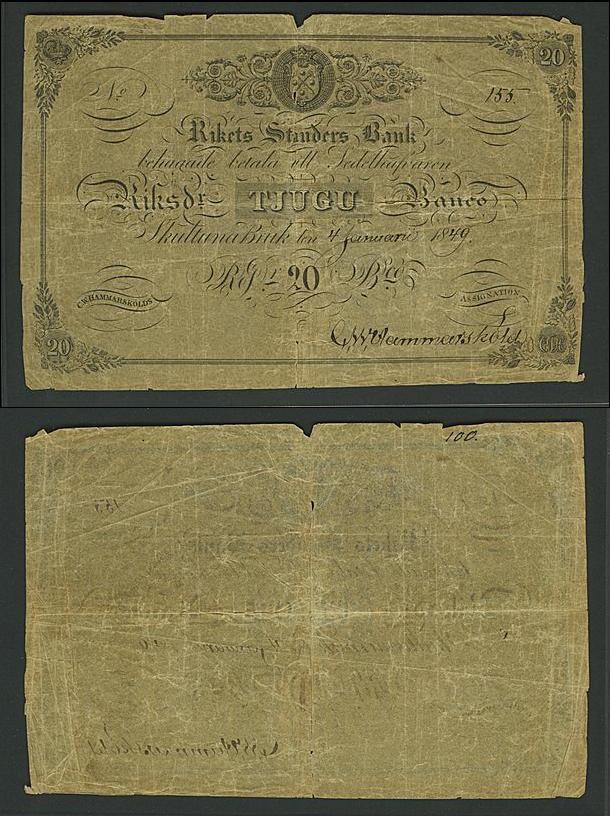 20
No 155.
Rikets Ständers Bank
behagade betala till Sedelhafvaren
Riksdr TJUGU Banco
Skultuna Bruk den 4 Januarii 1849.
RGs 20 Bco
C.W. HAMMARSKÖLDS
ASSIGNATION
CWHammarsköld
20
100.